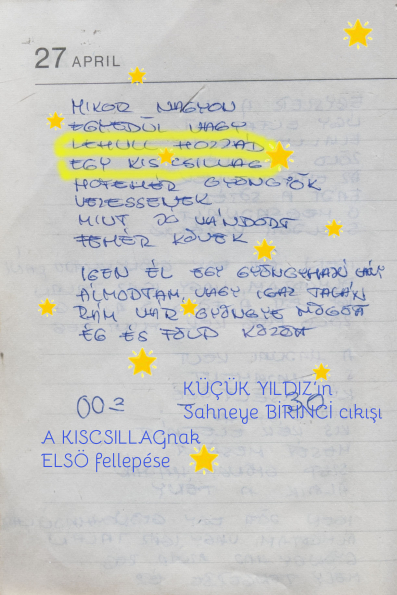 27 APRIL
MIKOR NAGYON
EGYEDÜL VAGY
LEHULL HOZZÁD
EGY KIS CSILLAG
HÓFEHÉR GYÖNGYÖK
VEZESSENEK
MINT JÓ VÁNDORT
FEHÉR KÖVEK
IGEN ÉL EGY GYÖNGYHAJÚ LÁNY
ÁLMODTAM VAGY IGAZ TALÁN
RÁM VÁR GYÖNGYE MÖGÖTT
ÉG ÉS FÖLD KÖZÖTT
KÜÇÜK YILDIZ'ın
Sahneye BİRİNCİ cıkışı
30
A KISCSILLAGnak
ELSÖ fellepése